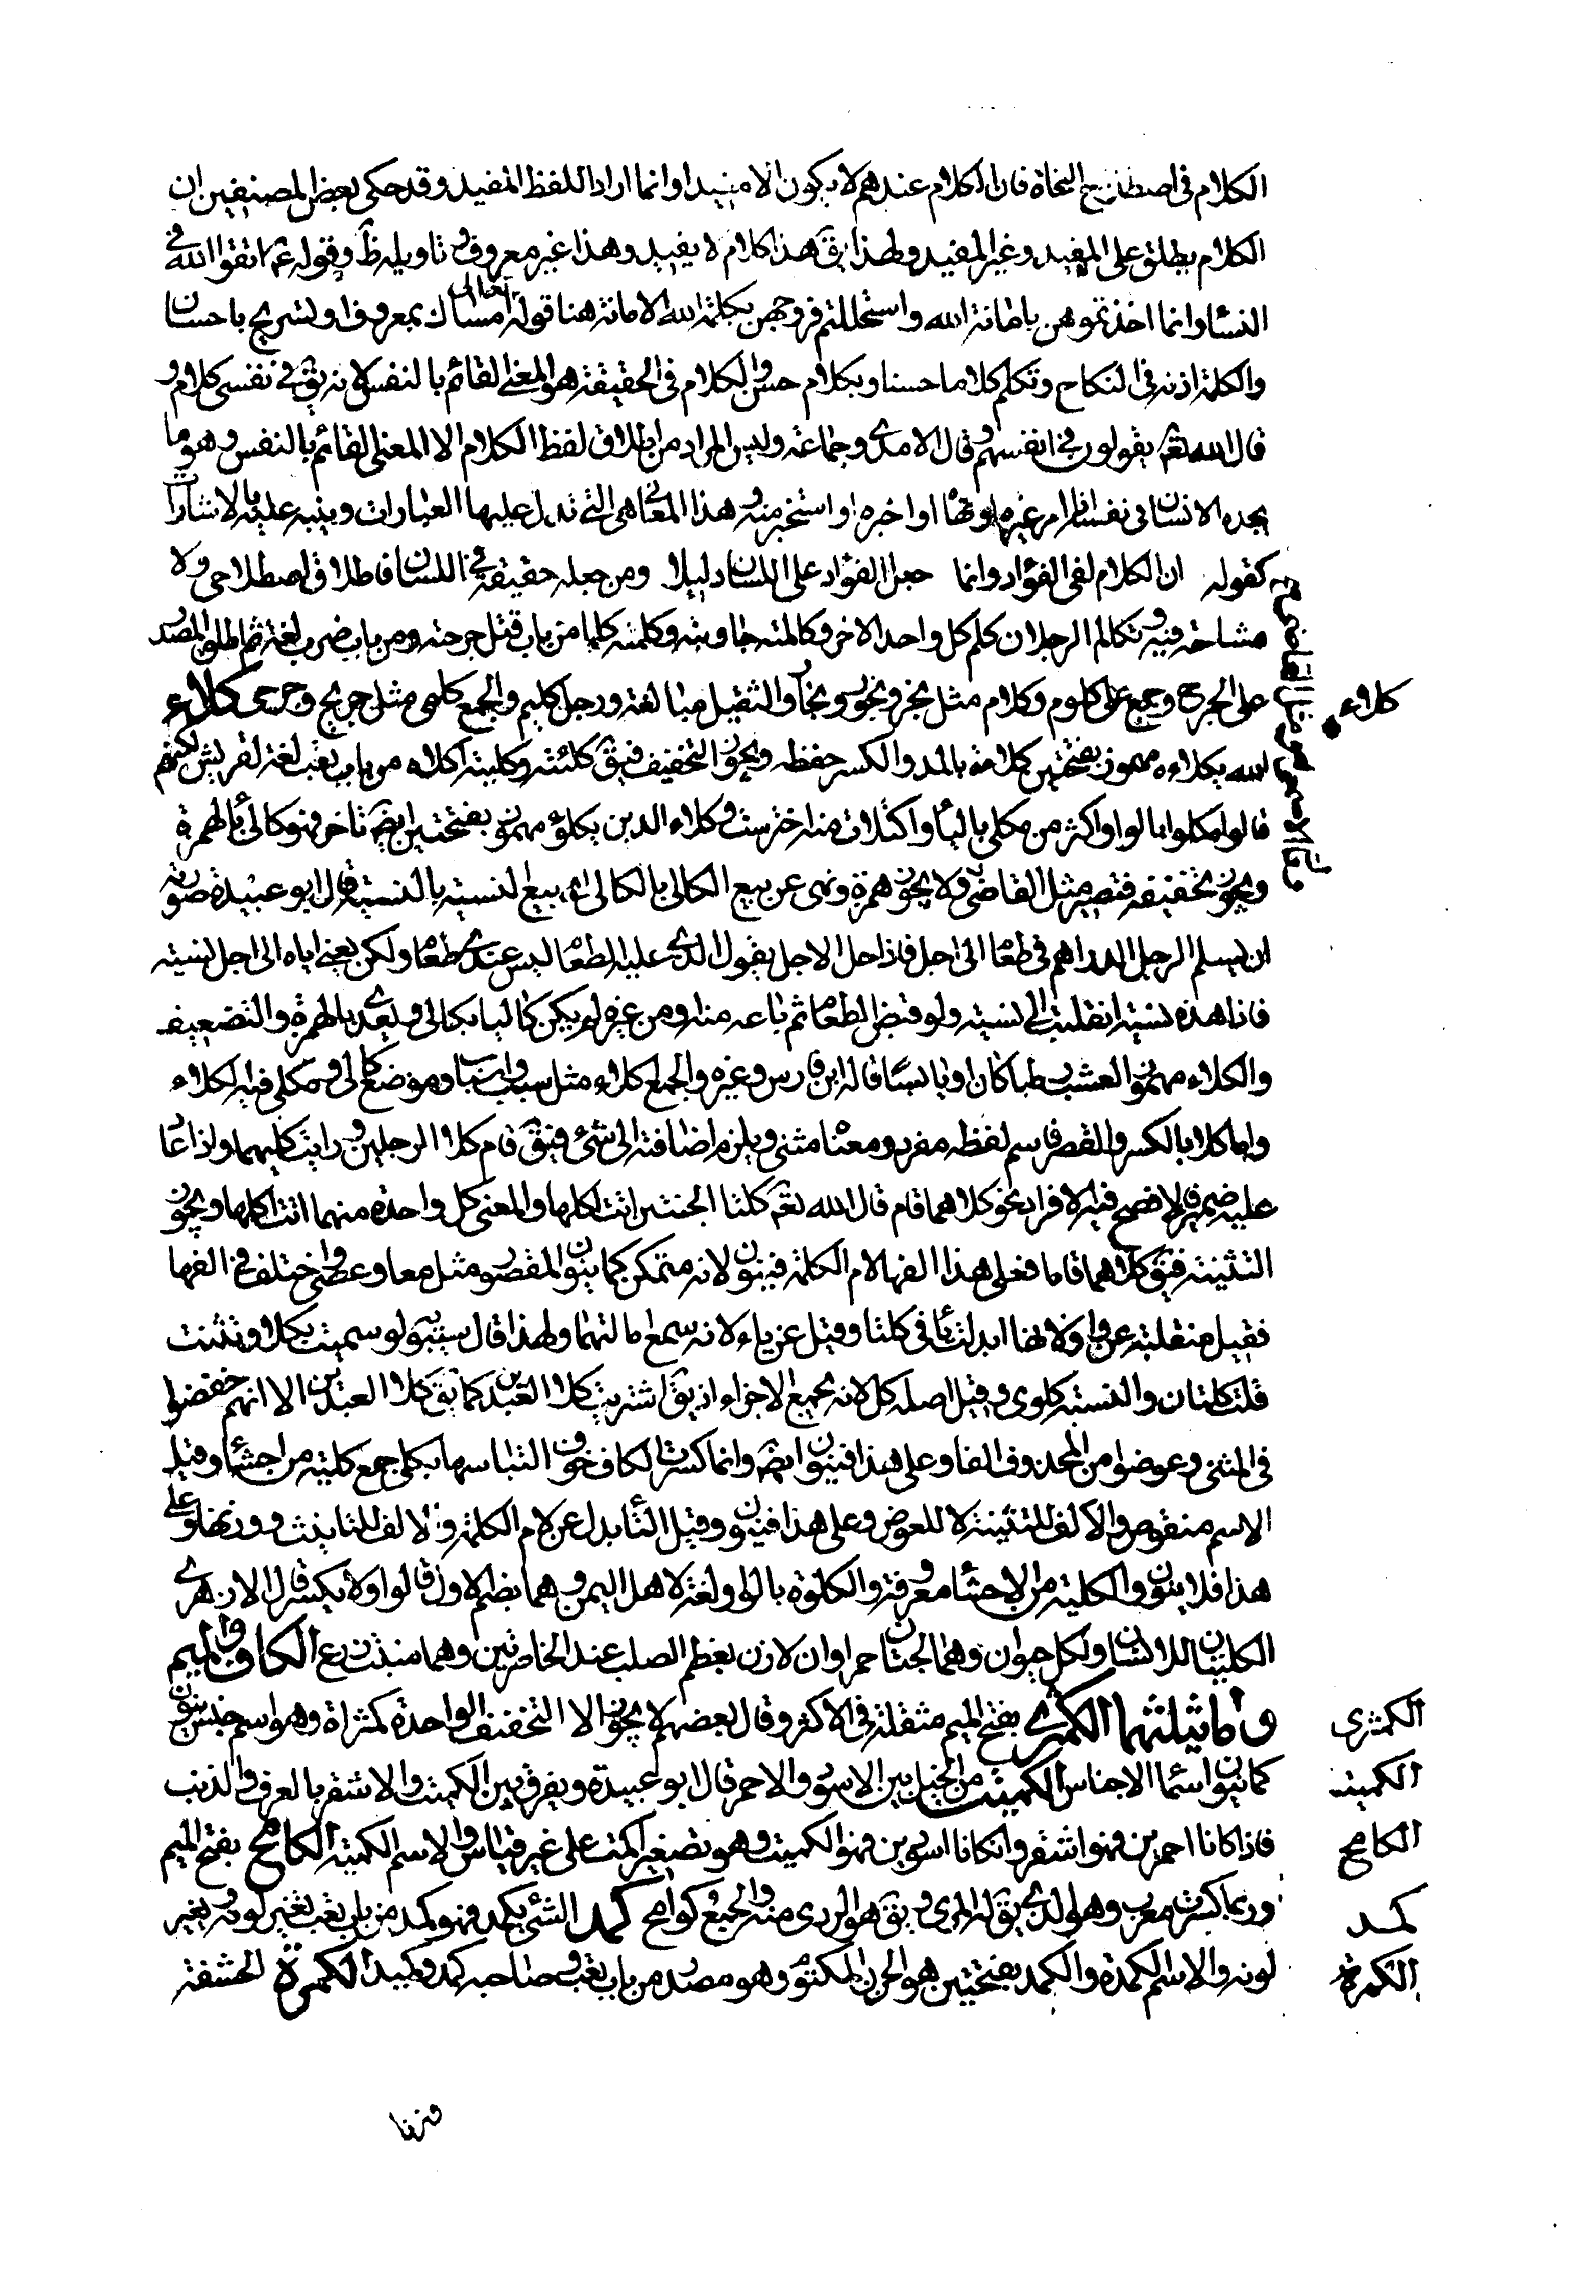 الكلام فى اصطلاح النحاة فان الكلام عندهم لا يكون الا مفيدا وانما اراد اللفظ المفيد وقد حكى بعض المصنفين ان
الكلام يطلق على المفيد وغير المفيد ولهذا يق هذا كلام لا يفيد وهذا غير معروف وتاويله ظ وقوله ع اتقوا الله فى
النساء وانما اخذتموهن بامانة الله واستحللتم فروجهن بكلمة الله الامانة هنا قوله تعالى امساك بمعروف او تسريح باحسان
والكلمة اذنه فى النكاح وتكلم كلاما حسنا وبكلام حسن والكلام فى الحقيقة هو المعنى القائم بالنفس لانه يق فى نفسى كلام و
قال الله تعم يقولون فى انفسهم وقال الامدى وجماعة وليس المراد من اطلاق لفظ الكلام الا المعنى القائم بالنفس وهو ما
يجده الانسان فى نفسه اذا امر غيره او نهاه او اخبره او استخبر منه وهذه المعانى هى التى تدل عليها العبارات وينبه عليها بالاشارات
كقوله ان الكلام لفى الفؤاد وانما جعل الفؤاد على اللسان دليلا ومن جعله حقيقة فى اللسان فاطلاق اصطلاحى ولا
مشاحة فيه وتكالم الرجلان كلم كل واحد الاخر وكالمته جاوبته وكلمته كلما من باب قتل جرحته ومن باب ضرب لغة ثم اطلق المصدر
على الجرح وجمع على كلوم وكلام مثل بحر وبحور وبحار والتثقيل مبالغة ورجل كليم والجمع كلمى مثل جريح وجرحى كلاء
كلاء
الله يكلاءه مهموز بفتحتين كلاءة بالمد والكسر حفظه ويجوز التخفيف فيق كليته وكليته اكلاه من باب تعب لغة لقريش لكنهم
قالوا مكلو بالواو اكثر من مكلى بالياء واكتلات منه احترست وكلاء الدين يكلؤ مهموز بفتحتين ايضم تاخر فهو كالئ بالهمزة
ويجوز تخفيفه فتصير مثل القاضى ولا يجوز همزه ونهى عن بيع الكالى بالكالى اى بيع النسيئة بالنسيئة قال ابو عبيدة صورته
ان يسلم الرجل الدراهم فى طعام الى اجل فاذا حل الاجل يقول الذى عليه الطعام ليس عندى طعام ولكن بعنى اياه الى اجل نسيئة
فاذا هذه نسيئة انقلبت الى نسيئة ولو قبض الطعام ثم باعه منه ومن غيره لم يكن كاليا بكالى ويعدى بالهمزة والتضعيف
والكلاء مهموز العشب رطبا كان او يابسا قاله ابن فارس وغيره والجمع اكلاء مثل سبب واسباب وموضع كالى ومكلى فيه الكلاء
واما كلا بالكسر والقصر فاسم لفظه مفرد ومعناه مثنى ويلزم اضافته الى مثنى فيق قام كلا الرجلين ورايت كليهما واذا عاد
عليه ضمير فالافصح فيه الافراد نحو كلاهما قام قال الله تعم كلتا الجنتين اتت اكلها والمعنى كل واحدة منهما اتت اكلها ويجوز
التثنية فيق كلاهما قاما فعلى هذا الفها لام الكلمة فينون لانه متمكن كما ينون المقصور مثل معا وعصى واختلف فى الفها
فقيل منقلبة عن واو لانها ابدلت تاء فى كلتا وقيل عن ياء لانه سمع امالتهما ولهذا قال سيبويه لو سميت بكلا وتثنت
قلت كلتان والنسبة كلوى وقيل اصله كل لانه لجميع الاجزاء اذ يق اشتريت كلا العبدين كما يق كلا العبدين الا انهم خفضوا
فى المثنى وعوضوا من المحذوف الفا وعلى هذا فينون ايضم وانما كسرت الكاف خوف التباسها بكلى جمع كلية من احشاء وقيل
الاسم منقوص والالف للتثنية لا للعوض وعلى هذا فينون وقيل التاء بدل عن لام الكلمة والالف للتانيث ووزنها وعلى
هذا فلا ينون والكلية من الاحشاء معروفة والكلوة بالواو لغة لاهل اليمن وهما بضم الاول قالوا ولا يكسر قال الازهرى
الكليتان للانسان ولكل حيوان وهما لجمتان حمراوان لازقتان بعظم الصلب عند الخاصرتين وهما منبت زرع الكاف والميم
وما يثلثهما الكمثرى بفتح الميم مثقلة فى الاكثر وقال بعضهم لا يجوز الا التخفيف الواحدة كمثراة وهو اسم جنس ينون
الكمثرى
كما ينون اسماء الاجناس الكميت من الخيل بين الاسود والاحمر قال ابو عبيدة ويفرق بين الكميت والاشقر بالعرف والذنب
الكميت
فاذا كانا احمرين فهو اشقر وان كانا اسودين فهو الكميت وهو تصغير اكمت على غير قياس والاسم الكمتة الكامخ بفتح الميم
الكامخ
وربما كسرت معرب وهو الذى يق له المرى ويق هو الردى منه والجمع كوامخ كمد الشئ يكمد فهو كمد من باب تعب تغير لونه تغير
كمد
لونه والاسم الكمدة والكمد بفتحتين هو الحزن المكتوم وهو مصدر من باب تعب وصاحبه كمد وكميد الكمرة الحشفة
الكمرة